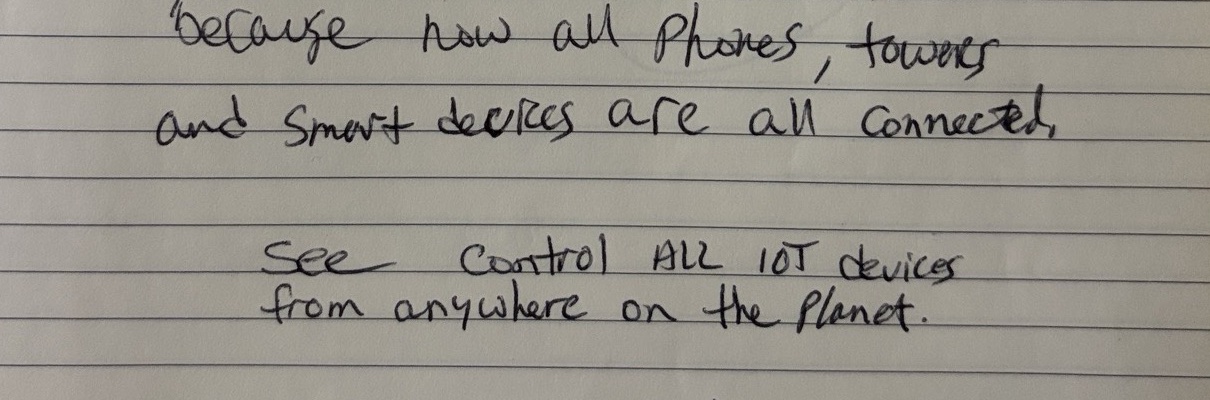 because now all Phones, towers
and Smart devices are all Connected,
See Control ALL IOT devices
from anywhere on the Planet.